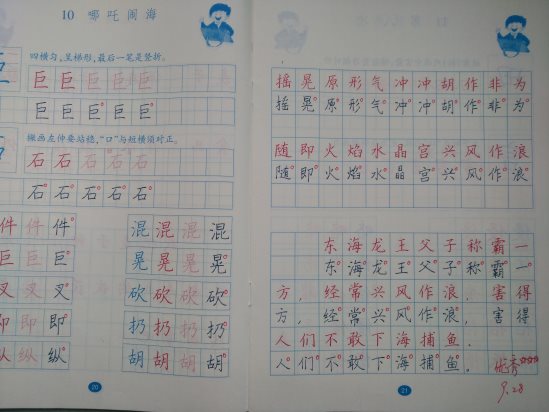 10 哪吒闹海
四横匀,呈梯形,最后一笔是竖折。
巨 巨 巨 巨 巨
巨 巨 巨 巨 巨
撇画左伸要站稳,“口”与短横须对正。
石 石 石 石 石
石 石 石 石 石
件 件 件
巨 巨 巨
叉 叉 叉
即 即 即
纵 纵 纵
混 混 混 混
晃 晃 晃 晃
砍 砍 砍 砍
扔 扔 扔 扔
胡 胡 胡 胡
20
摇晃 原形 气冲冲 胡作非为
摇晃 原形 气冲冲 胡作非为
随即 火焰 水晶宫 兴风作浪
随即 火焰 水晶宫 兴风作浪
东海龙王父子称霸一
东海龙王父子称霸一
方,经常兴风作浪,害得
方,经常兴风作浪,害得
人们不敢下海捕鱼。
人们不敢下海捕鱼。
优秀
9.28
21